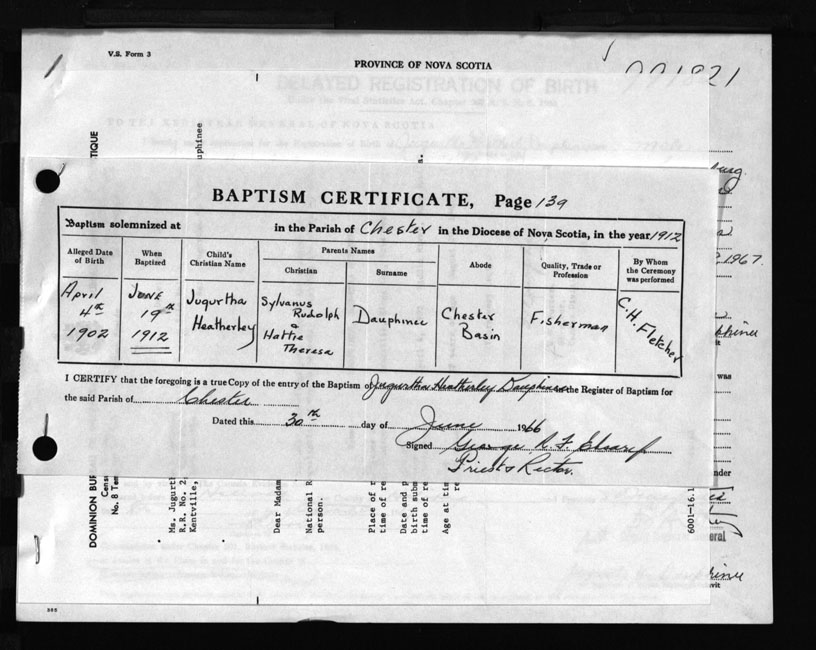 V.S. Form 3
PROVINCE OF NOVA SCOTIA
991821
DELAYED REGISTRATION OF BIRTH
BAPTISM CERTIFICATE, Page 139
Baptism solemnized at in the Parish of Chester in the Diocese of Nova Scotia, in the year 1912
Alleged Date of Birth
When Baptized
Child's Christian Name
Parents Names
Christian
Surname
Abode
Quality, Trade or Profession
By Whom the Ceremony was performed
April 4th 1902
June 19th 1912
Jugurtha Heatherley
Sylvanus Rudolph & Hattie Theresa
Dauphinee
Chester Basin
Fisherman
C.H. Fletcher
I CERTIFY that the foregoing is a true Copy of the entry of the Baptism of Jugurtha Heatherley Dauphinee in the Register of Baptism for
the said Parish of Chester
Dated this 30th day of June 1966
Signed George R. F.
Priest & Rector.
DOMINION BUR
Census
No. 8 Tem
Ms. Jugurth
R.R. No. 2,
Kentville,
Dear Madam
National R
person.
Place of r
time of re
Date and p
birth subm
time of re
Age at tim
re
6001-16.1
1967.
was